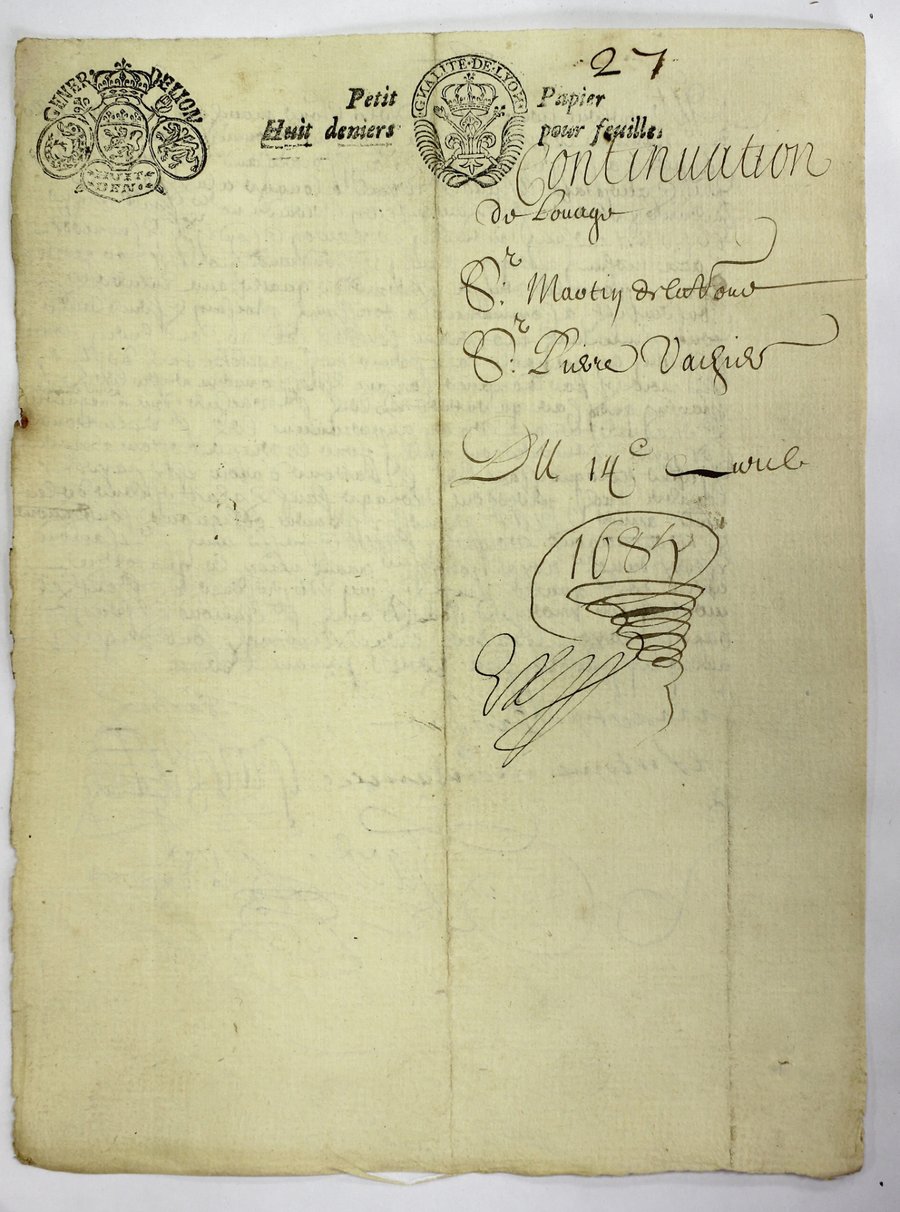 27
GENER DE LION
HUIT
DEN
GNALITE·DE·LYON
Petit Papier
Huit deniers pour feuille.
Continuation
de Louage
Sr. Martin delatour
Sr. Pierre Vachier
Du 14e avril
1684